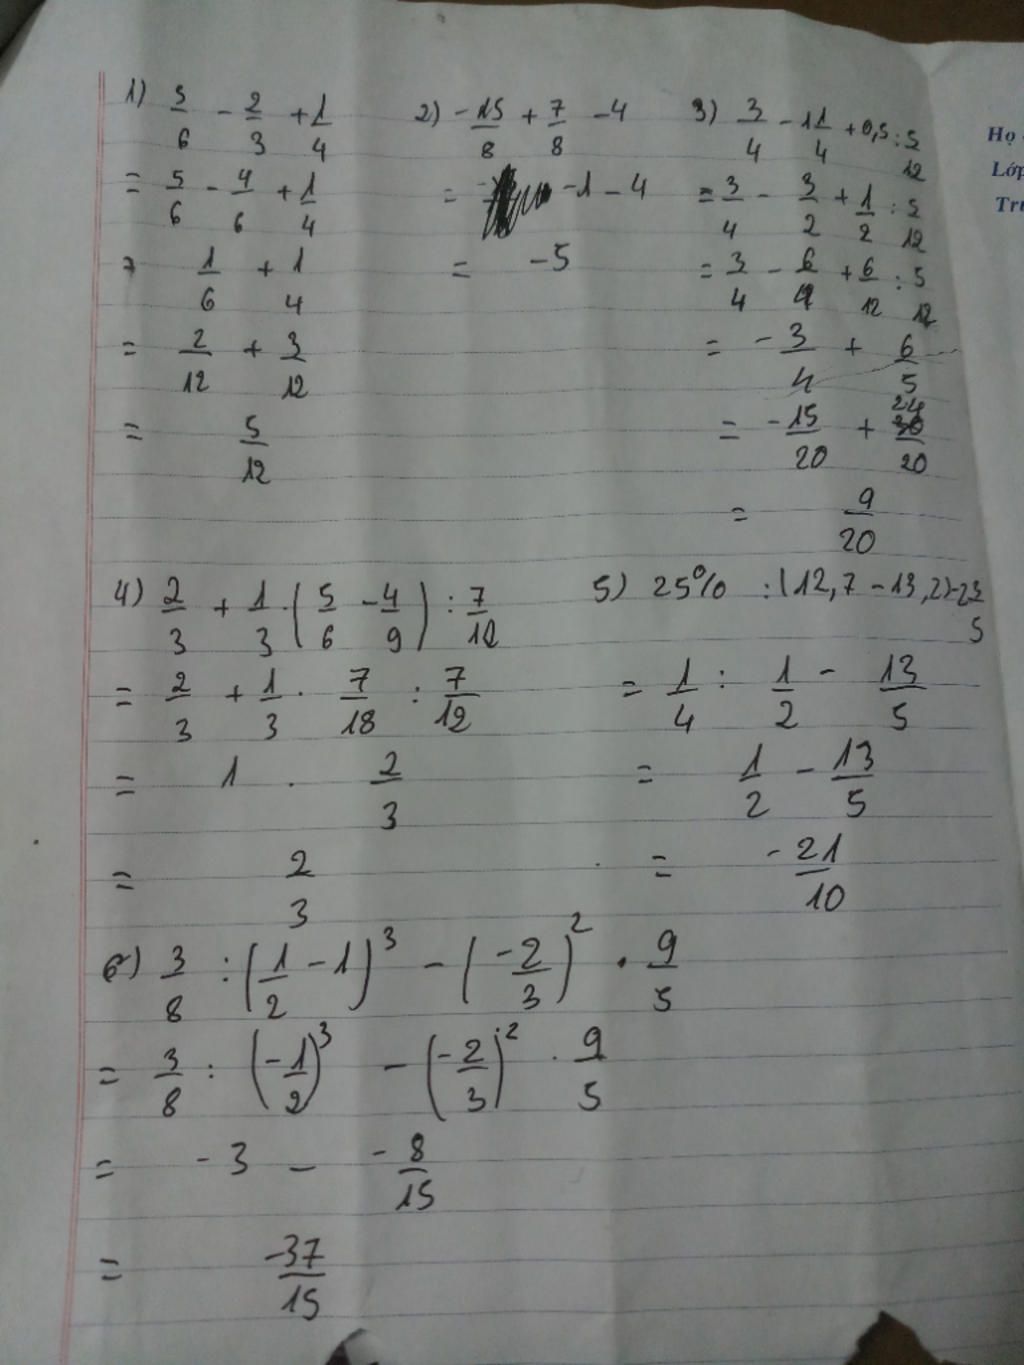 1) 5/6 - 2/3 + 1/4
= 5/6 - 4/6 + 1/4
= 1/6 + 1/4
= 2/12 + 3/12
= 5/12
2) -15/8 + 7/8 - 4
= -1 - 4
= -5
3) 3/4 - 1 1/4 + 0,5 : 5/12
= 3/4 - 3/2 + 1/2 : 5/12
= 3/4 - 6/4 + 6/12 : 5/12
= -3/4 + 6/5
= -15/20 + 24/20
= 9/20
4) 2/3 + 1/3 . (5/6 - 4/9) : 7/12
= 2/3 + 1/3 . 7/18 : 7/12
= 1 . 2/3
= 2/3
5) 25% : (12,7 - 13,2) - 23/5
= 1/4 : 1/2 - 13/5
= 1/2 - 13/5
= -21/10
6) 3/8 : (1/2 - 1)³ - (-2/3)² . 9/5
= 3/8 : (-1/2)³ - (-2/3)² . 9/5
= -3 - -8/15
= -37/15
Họ
Lớp